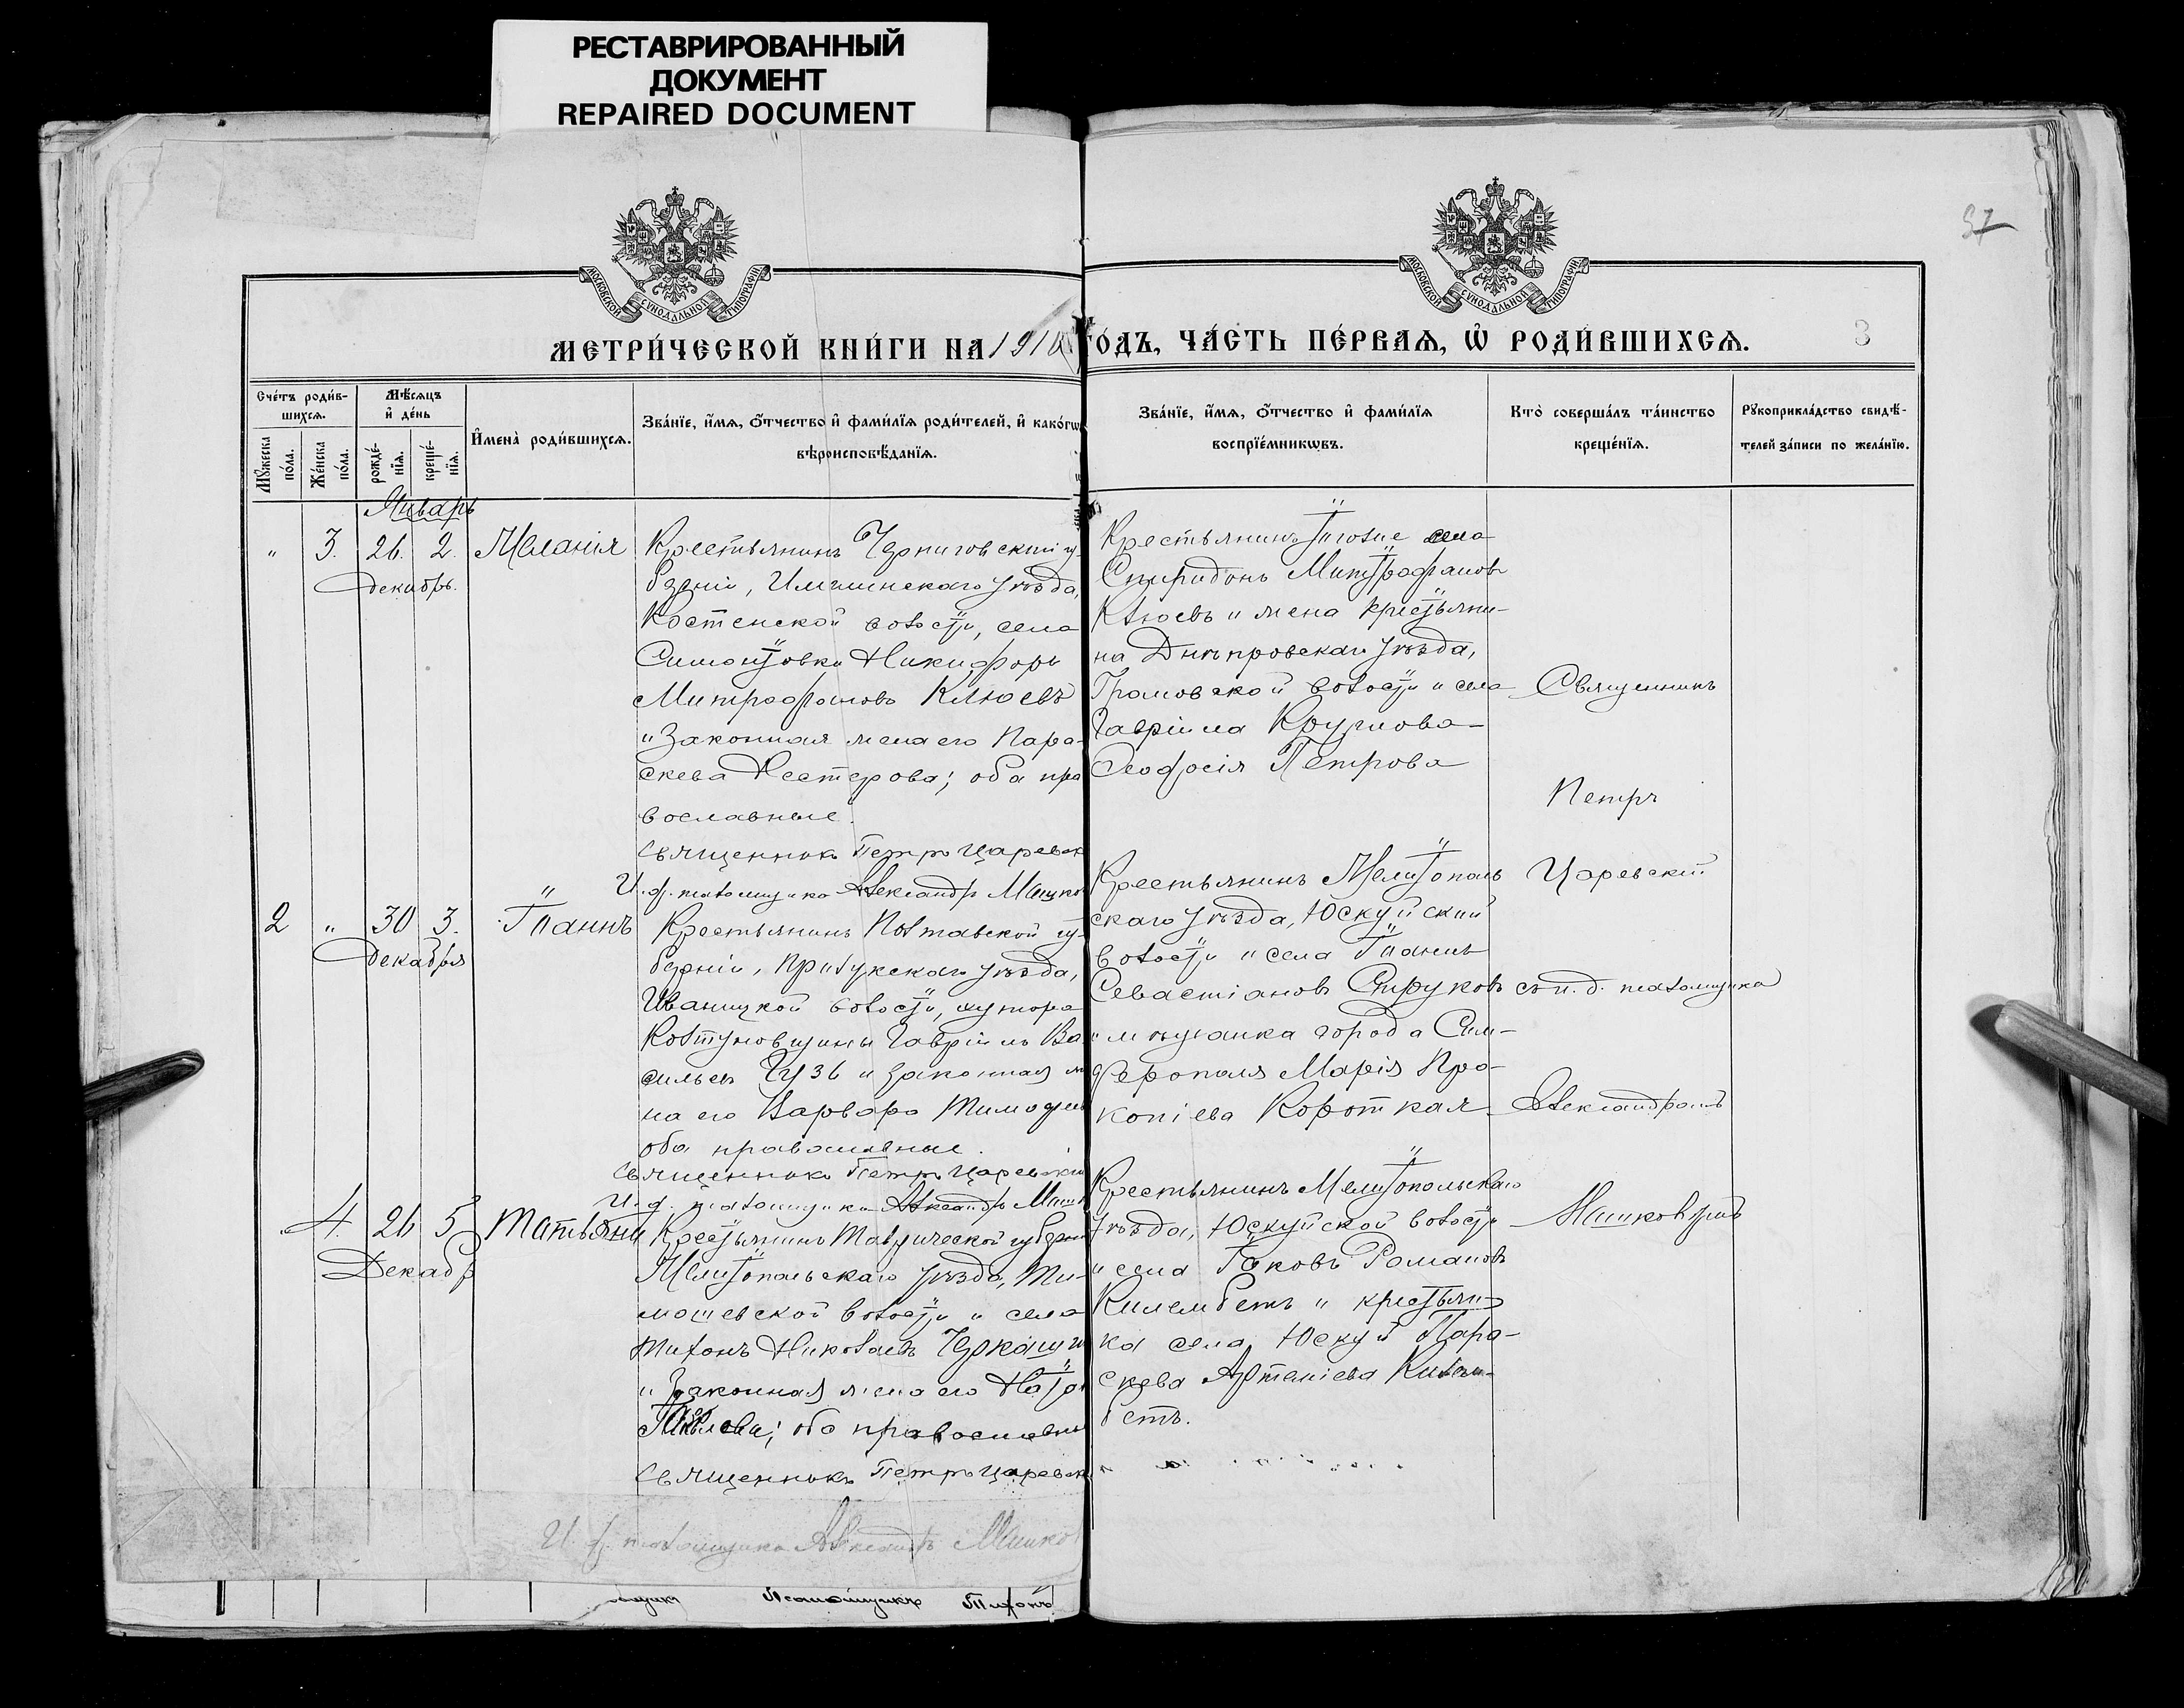 РЕСТАВРИРОВАННЫЙ
ДОКУМЕНТ
REPAIRED DOCUMENT
МОСКОВСКОЙ СУНОДАЛЬНОЙ ТИПОГРАФИИ
МОСКОВСКОЙ СУНОДАЛЬНОЙ ТИПОГРАФИИ
37
МЕТРИ́ЧЕСКОЙ КНИ́ГИ НА 1910 ГО́ДЪ, ЧА́СТЬ ПЕ́РВАѦ, Ѡ҆ РОДИ́ВШИХСѦ.
3
Счетъ роди́в-
шихсѧ.
Мꙋжеска по́ла.
Же́нска по́ла.
Мѣ́сѧцъ
и҆ де́нь
рожде́-
нїѧ.
креще́-
нїѧ.
И҆мена̀ роди́вшихсѧ.
Зва́нїе, и҆́мѧ, ѻ҆́тчество и҆ фами́лїѧ роди́телей, и҆ како́гѡ
вѣроисповѣ́данїѧ.
Зва́нїе, и҆́мѧ, ѻ҆́тчество и҆ фами́лїѧ
воспрїе́мникѡвъ.
Кто̀ соверша́лъ та́инство
креще́нїѧ.
Рꙋкоприкла́дство свидѣ́-
телей за́писи по жела́нїю.
Январь
" 3. 26. 2. Меланія
Декабрь.
Крестьянинъ Черниговской гу-
берніи, уѣзда,
Костенской волости, села
Никифоръ
Митрофановъ Клюевъ
и законная жена его Пара-
скева Нестерова; оба пра
вославные.
Священникъ Петръ Царевск
И. д. псаломщика Александръ Машко
Крестьянинъ села
Спиридонъ Митрофановъ
Клюевъ и жена крестьяни-
на Днѣпровскаго уѣзда,
Громовской волости и села
Гавріила Круглова
Ѳеодосія Петрова
Священникъ
Петръ
Царевскій
съ и. д. псаломщика
Александромъ
2 " 30 3. Іоаннъ
Декабря
Крестьянинъ Полтавской гу-
берніи, Прилукскаго уѣзда,
Иваницкой волости, хутора
Гавріилъ Ва
сильевъ Гузь и законная ж
на его Варвара Тимоѳеев
оба православные.
Священникъ Петръ Царевскій
И. д. псаломщика Александръ Машк
Крестьянинъ Мелитополь
скаго уѣзда, Юскуйской
волости и села Іоаннъ
Севастіановъ Струковъ
и мѣщанка города Сим-
ферополя Марія Про-
копіева Короткая
4. 26 5 Татьяна
Декабр
Крестьянинъ Таврической губерни
Мелитопольскаго уѣзда, Ти-
мошевской волости и села
Тихонъ Николаевъ
и законная жена его
оба православны
Священникъ Петръ Царевск
И. д. псаломщика Александръ Машко
Крестьянинъ Мелитопольскаго
уѣзда, Юскуйской волости
и села Іаковъ Романовъ
Килембетъ и крестьян-
ка села Юскуй Пара-
скева Килем-
бетъ.
Псаломщикъ Тихонъ